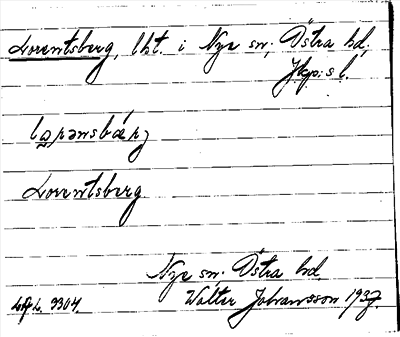 Lorentsberg, lht. i Nye sn, Östra hd,
Jkp:s l.
lo̰rənsbærj
Lorentsberg
Nye sn. Östra hd.
Walter Johansson 1937.
9304.